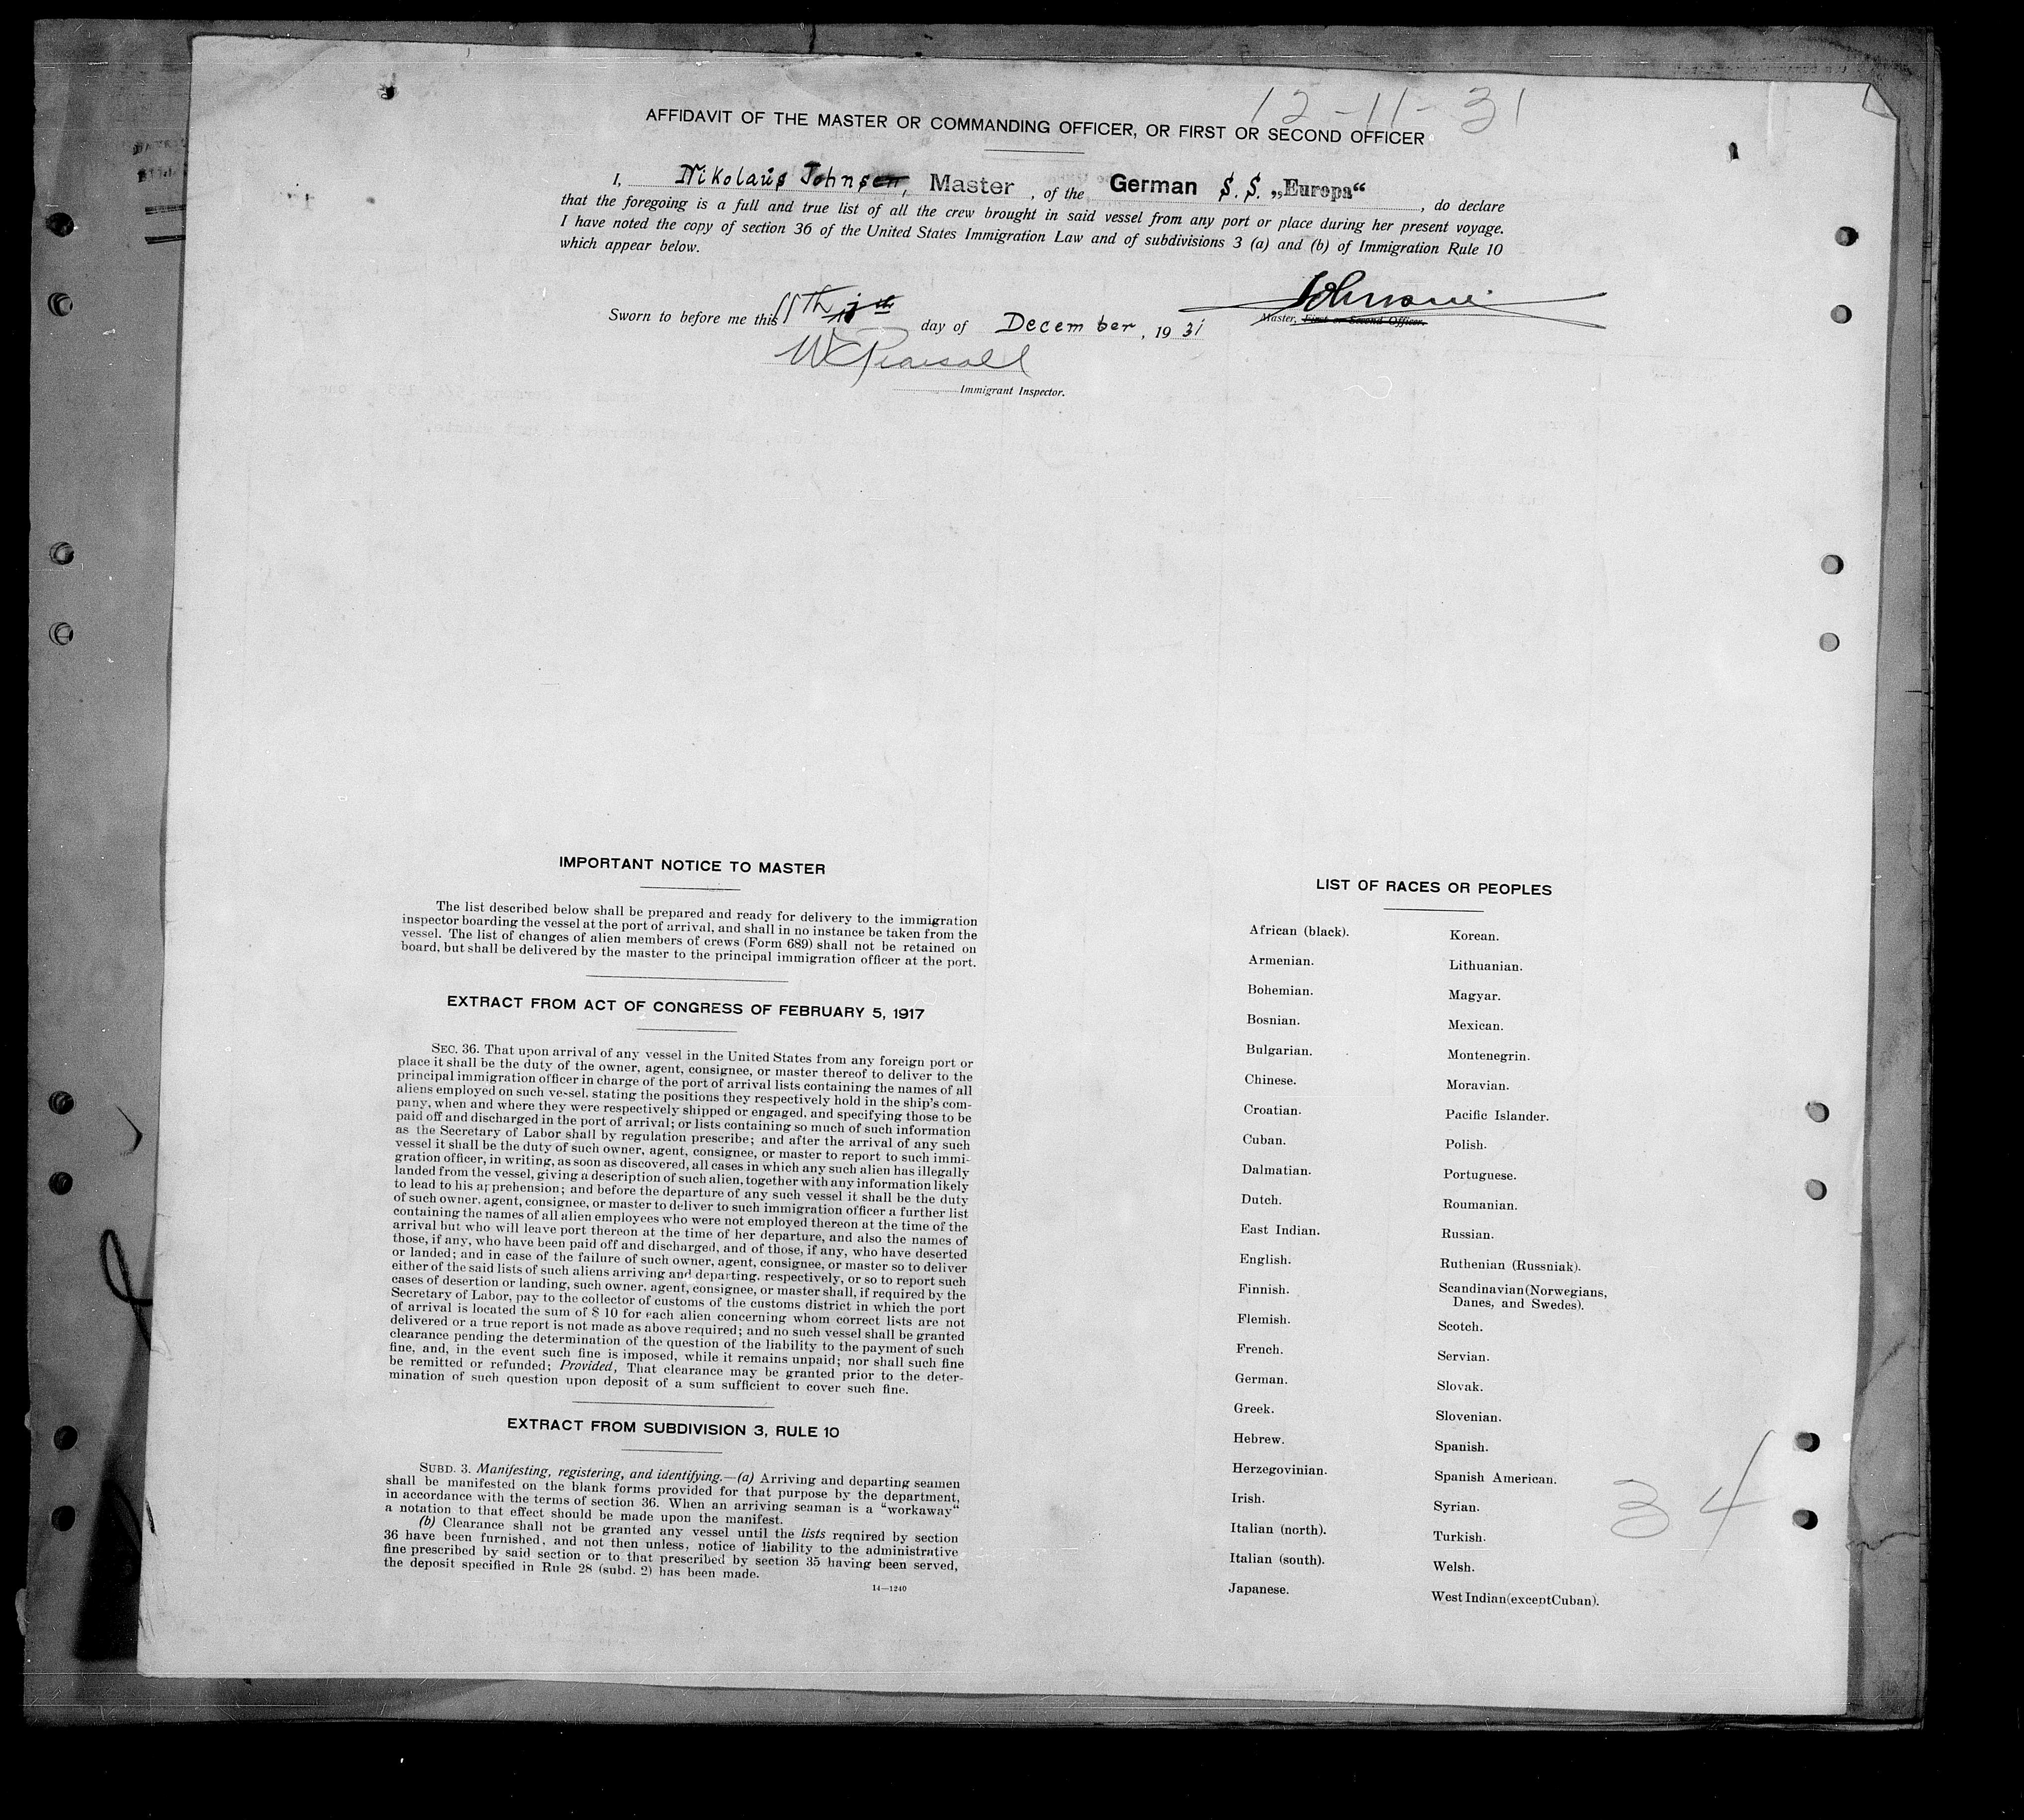 12-11-31
AFFIDAVIT OF THE MASTER OR COMMANDING OFFICER, OR FIRST OR SECOND OFFICER
I, Nikolaus Johnsen, Master, of the German S. S. „Europa“, do declare
that the foregoing is a full and true list of all the crew brought in said vessel from any port or place during her present voyage.
I have noted the copy of section 36 of the United States Immigration Law and of subdivisions 3 (a) and (b) of Immigration Rule 10
which appear below.
Johnsen
Sworn to before me this 11th day of December, 19 31
Master, First or Second Officer.
Immigrant Inspector.
IMPORTANT NOTICE TO MASTER
The list described below shall be prepared and ready for delivery to the immigration
inspector boarding the vessel at the port of arrival, and shall in no instance be taken from the
vessel. The list of changes of alien members of crews (Form 689) shall not be retained on
board, but shall be delivered by the master to the principal immigration officer at the port.
EXTRACT FROM ACT OF CONGRESS OF FEBRUARY 5, 1917
SEC. 36. That upon arrival of any vessel in the United States from any foreign port or
place it shall be the duty of the owner, agent, consignee, or master thereof to deliver to the
principal immigration officer in charge of the port of arrival lists containing the names of all
aliens employed on such vessel, stating the positions they respectively hold in the ship's com-
pany, when and where they were respectively shipped or engaged, and specifying those to be
paid off and discharged in the port of arrival; or lists containing so much of such information
as the Secretary of Labor shall by regulation prescribe; and after the arrival of any such
vessel it shall be the duty of such owner, agent, consignee, or master to report to such immi-
gration officer, in writing, as soon as discovered, all cases in which any such alien has illegally
landed from the vessel, giving a description of such alien, together with any information likely
to lead to his apprehension; and before the departure of any such vessel it shall be the duty
of such owner, agent, consignee, or master to deliver to such immigration officer a further list
containing the names of all alien employees who were not employed thereon at the time of the
arrival but who will leave port thereon at the time of her departure, and also the names of
those, if any, who have been paid off and discharged, and of those, if any, who have deserted
or landed; and in case of the failure of such owner, agent, consignee, or master so to deliver
either of the said lists of such aliens arriving and departing, respectively, or so to report such
cases of desertion or landing, such owner, agent, consignee, or master shall, if required by the
Secretary of Labor, pay to the collector of customs of the customs district in which the port
of arrival is located the sum of $ 10 for each alien concerning whom correct lists are not
delivered or a true report is not made as above required; and no such vessel shall be granted
clearance pending the determination of the question of the liability to the payment of such
fine, and, in the event such fine is imposed, while it remains unpaid; nor shall such fine
be remitted or refunded; Provided, That clearance may be granted prior to the deter-
mination of such question upon deposit of a sum sufficient to cover such fine.
EXTRACT FROM SUBDIVISION 3, RULE 10
SUBD. 3. Manifesting, registering, and identifying.—(a) Arriving and departing seamen
shall be manifested on the blank forms provided for that purpose by the department,
in accordance with the terms of section 36. When an arriving seaman is a "workaway"
a notation to that effect should be made upon the manifest.
(b) Clearance shall not be granted any vessel until the lists required by section
36 have been furnished, and not then unless, notice of liability to the administrative
fine prescribed by said section or to that prescribed by section 35 having been served,
the deposit specified in Rule 28 (subd. 2) has been made.
14—1240
LIST OF RACES OR PEOPLES
African (black).
Armenian.
Bohemian.
Bosnian.
Bulgarian.
Chinese.
Croatian.
Cuban.
Dalmatian.
Dutch.
East Indian.
English.
Finnish.
Flemish.
French.
German.
Greek.
Hebrew.
Herzegovinian.
Irish.
Italian (north).
Italian (south).
Japanese.
Korean.
Lithuanian.
Magyar.
Mexican.
Montenegrin.
Moravian.
Pacific Islander.
Polish.
Portuguese.
Roumanian.
Russian.
Ruthenian (Russniak).
Scandinavian (Norwegians,
Danes, and Swedes).
Scotch.
Servian.
Slovak.
Slovenian.
Spanish.
Spanish American.
Syrian.
Turkish.
Welsh.
West Indian (except Cuban).
34